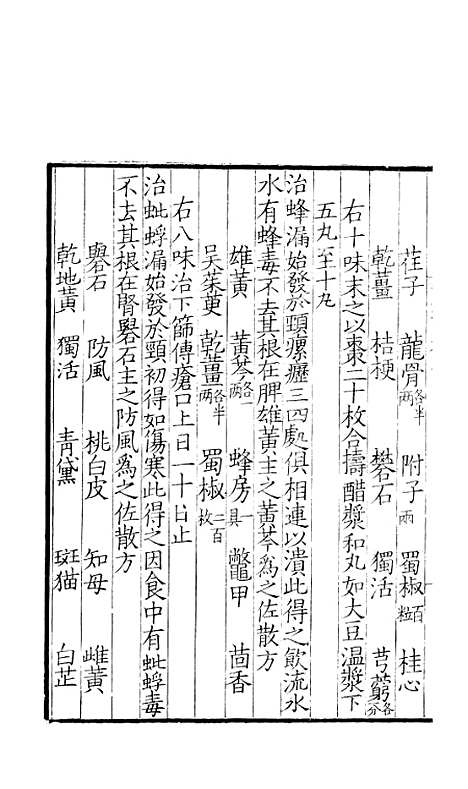 荏子　龍骨各半兩　附子一兩　蜀椒百粒　桂心
乾薑　桔梗　礬石　獨活　芎藭各分
右十味末之以棗二十枚合擣醋漿和丸如大豆溫漿下
五丸至十丸
治蜂漏始發於頸瘰癧三四處俱相連以潰此得之飲流水
水有蜂毒不去其根在脾雄黃主之黃芩為之佐散方
雄黃　黃芩各一兩　蜂房一具　鱉甲　茴香
吳茱萸　乾薑各半兩　蜀椒二百枚
右八味治下篩傅瘡口上日一十日止
治蚍蜉漏始發於頸初得如傷寒此得之因食中有蚍蜉毒
不去其根在腎礜石主之防風為之佐散方
礜石　防風　桃白皮　知母　雌黃
乾地黃　獨活　青黛　斑猫　白芷